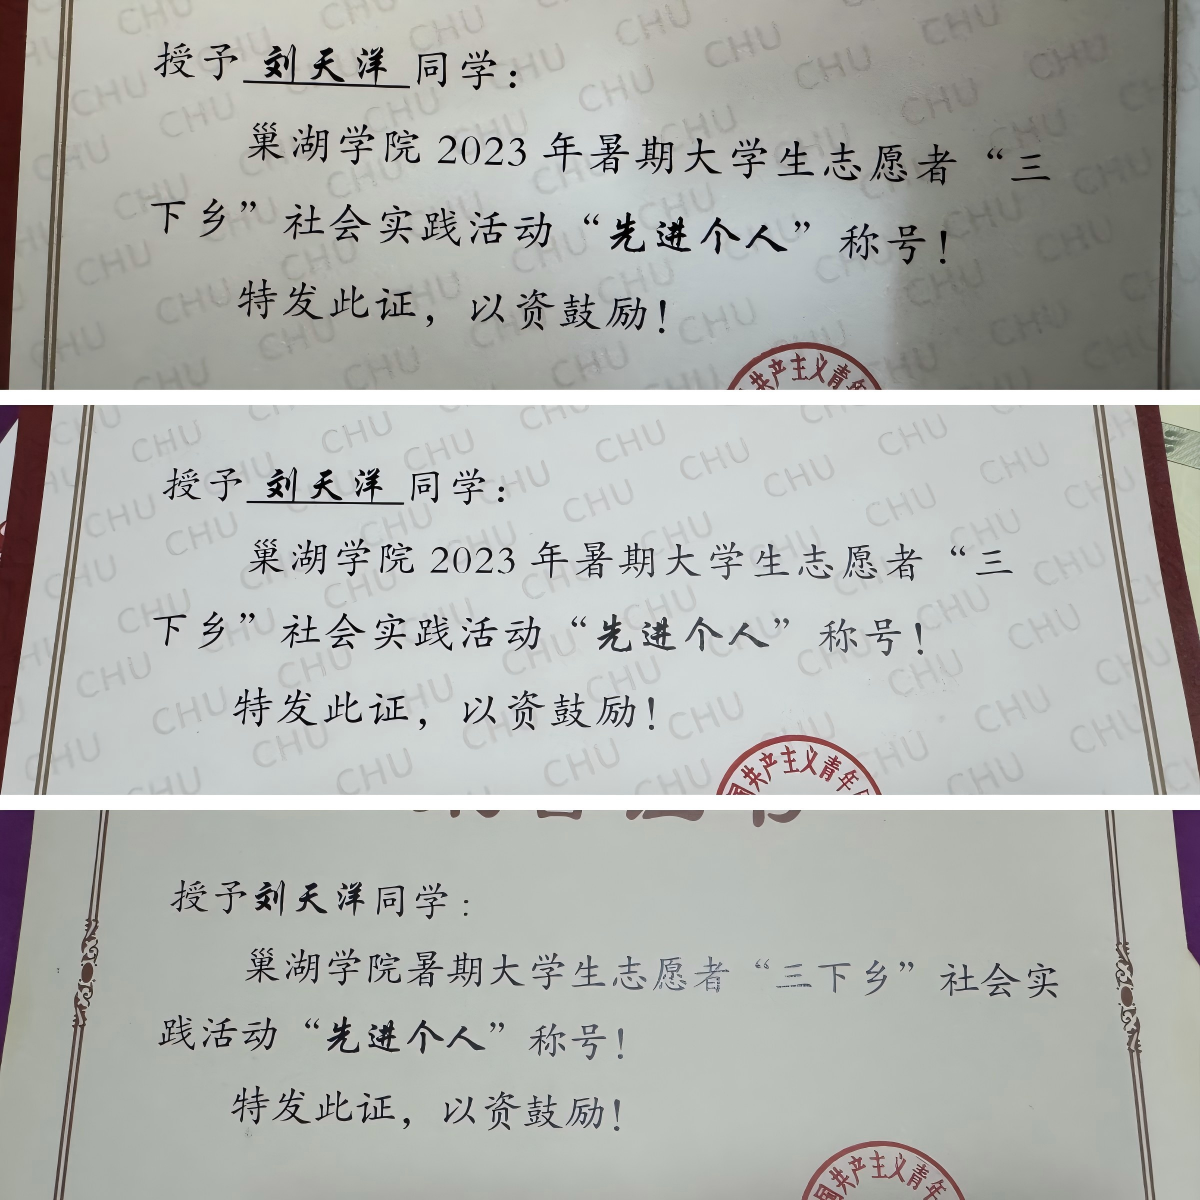 授予 刘天洋 同学：
巢湖学院 2023 年暑期大学生志愿者“三
下乡”社会实践活动“先进个人”称号！
特发此证，以资鼓励！
共产主义青年
授予 刘天洋 同学：
巢湖学院 2023 年暑期大学生志愿者“三
下乡”社会实践活动“先进个人”称号！
特发此证，以资鼓励！
国共产主义青年
授予刘天洋同学：
巢湖学院暑期大学生志愿者“三下乡”社会实
践活动“先进个人”称号！
特发此证，以资鼓励！
国共产主义青年
CHU